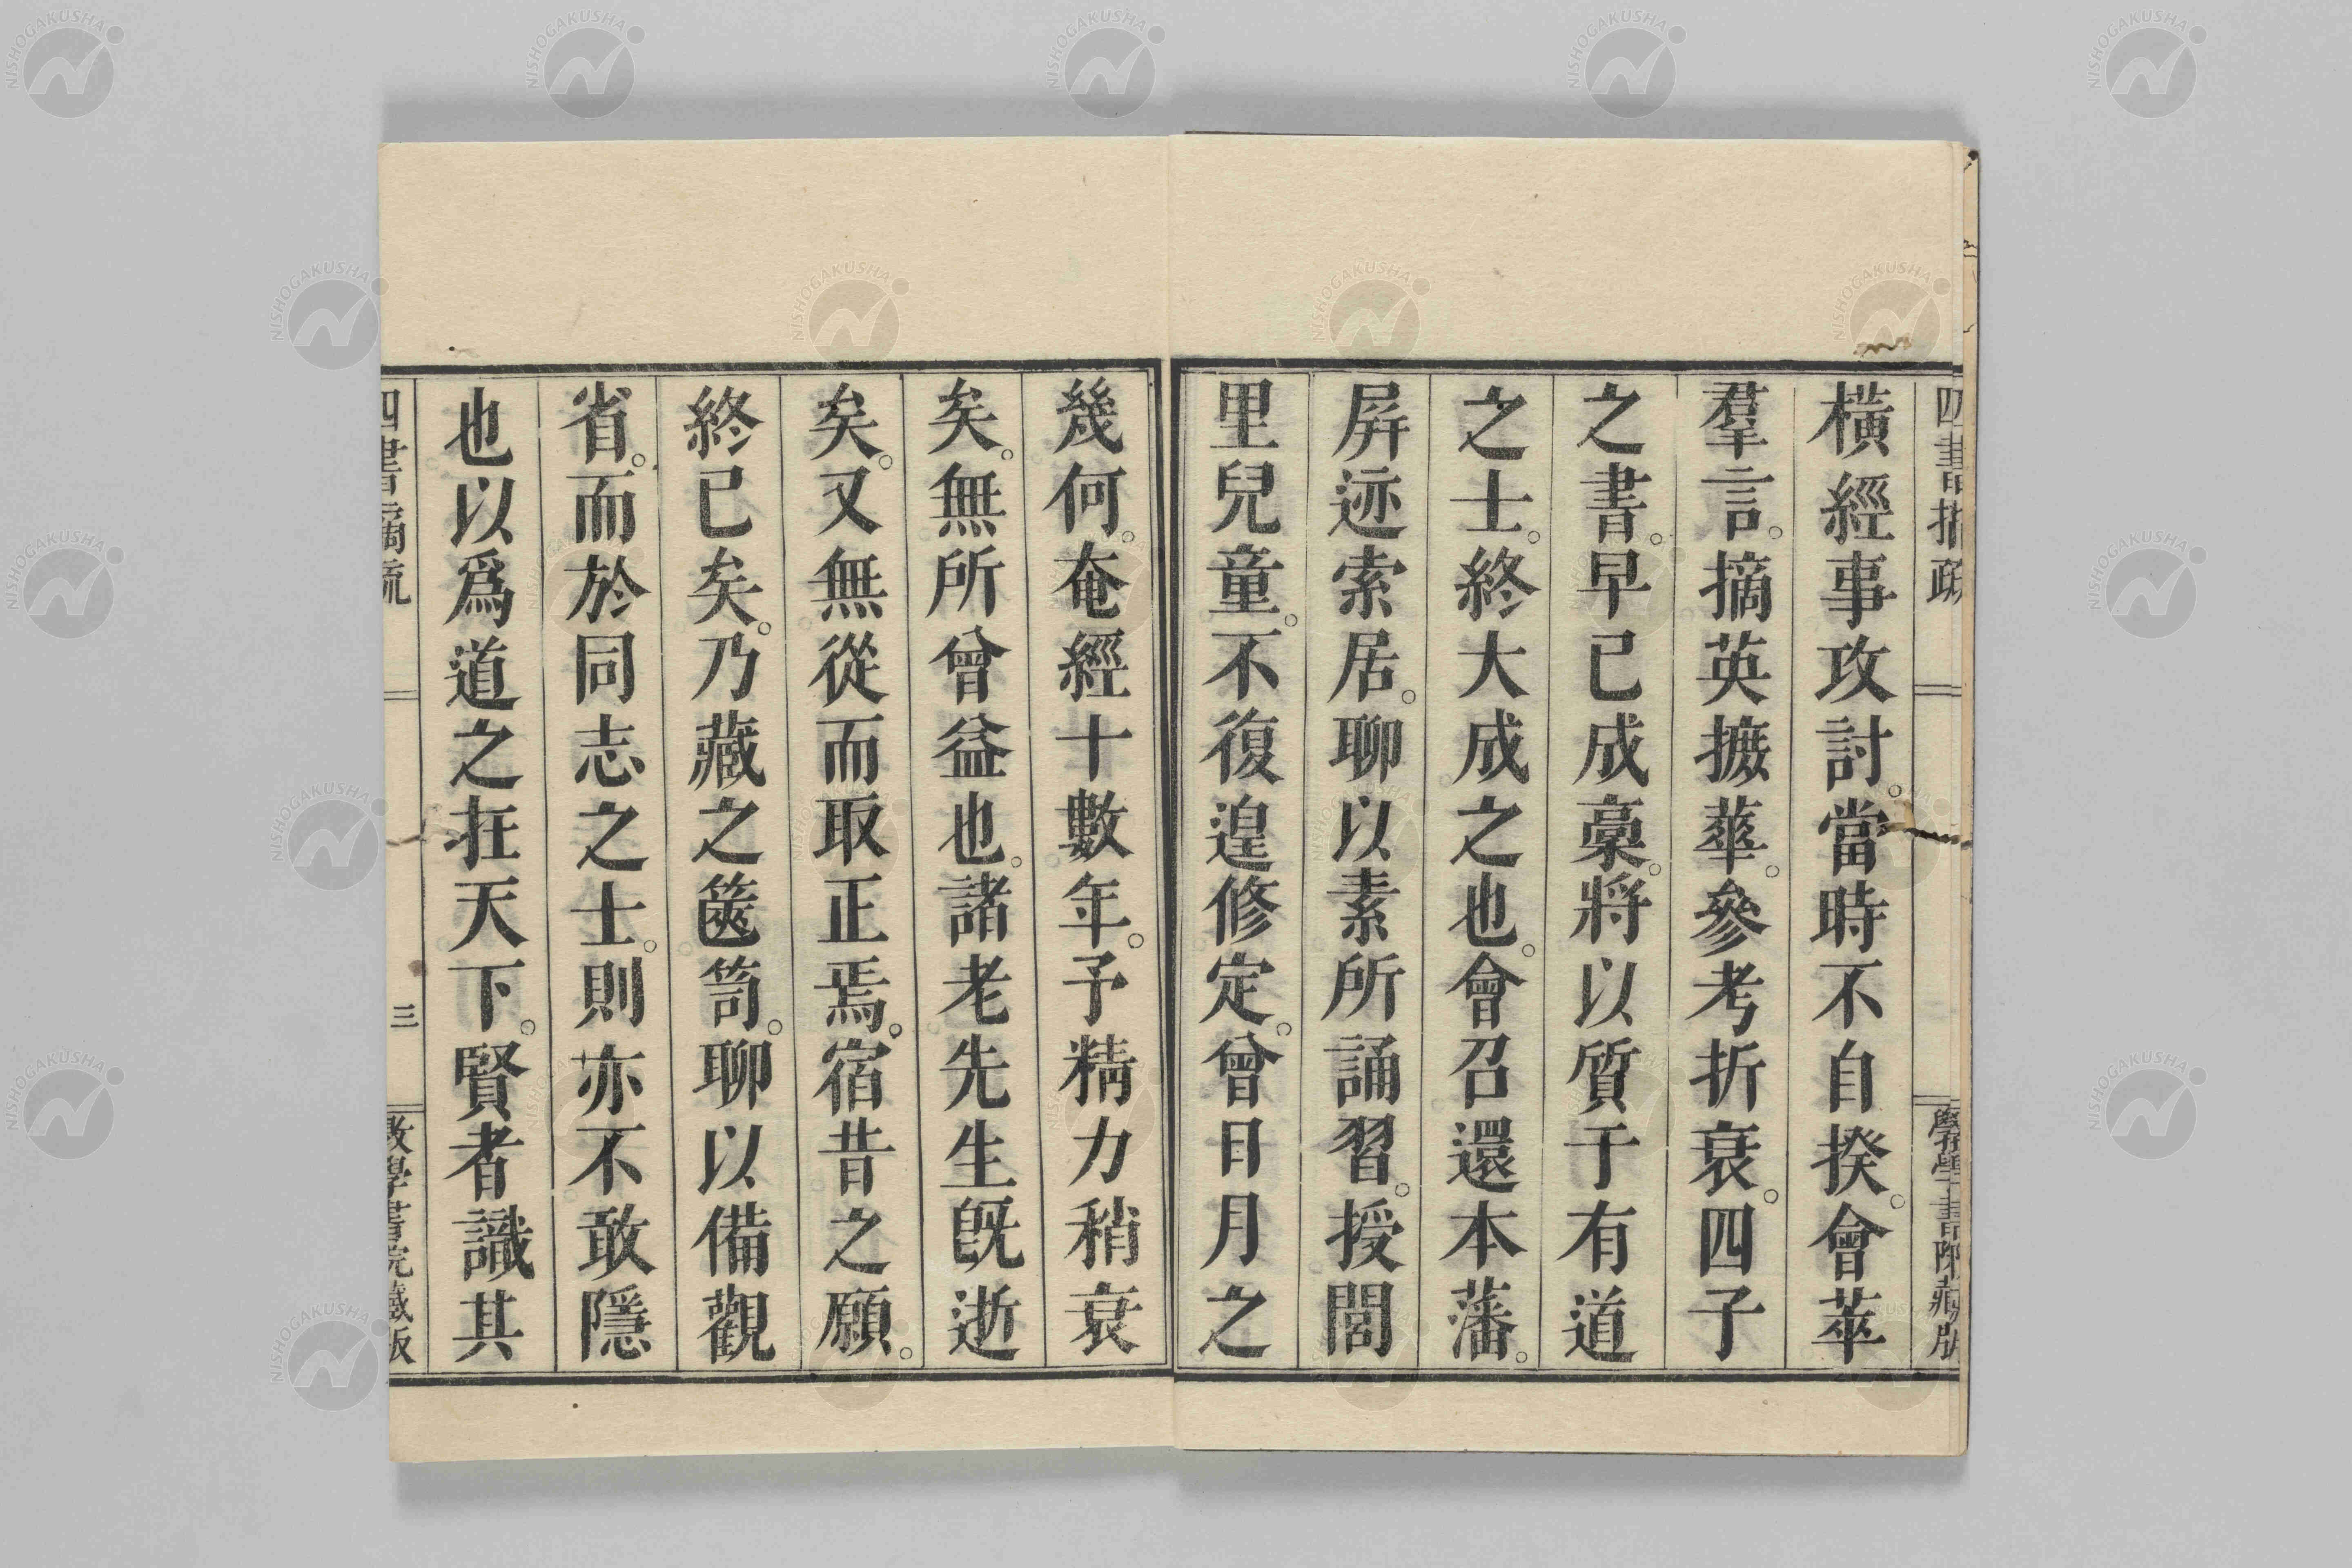 四書摘疏
斅學書院藏版
橫經事攻討。當時不自揆。會萃
羣言。摘英摭華。參考折衷。四子
之書。早已成稾。將以質于有道
之士。終大成之也。會召還本藩。
屏迹索居。聊以素所誦習。授閭
里兒童。不復遑修定。曾日月之
幾何。奄經十數年。予精力稍衰
矣。無所曾益也。諸老先生旣逝
矣。又無從而取正焉。宿昔之願。
終已矣。乃藏之篋笥。聊以備觀
省。而於同志之士。則亦不敢隱
也以爲道之在天下。賢者識其
四書摘疏
三
斅學書院藏版
NISHOGAKUSHA